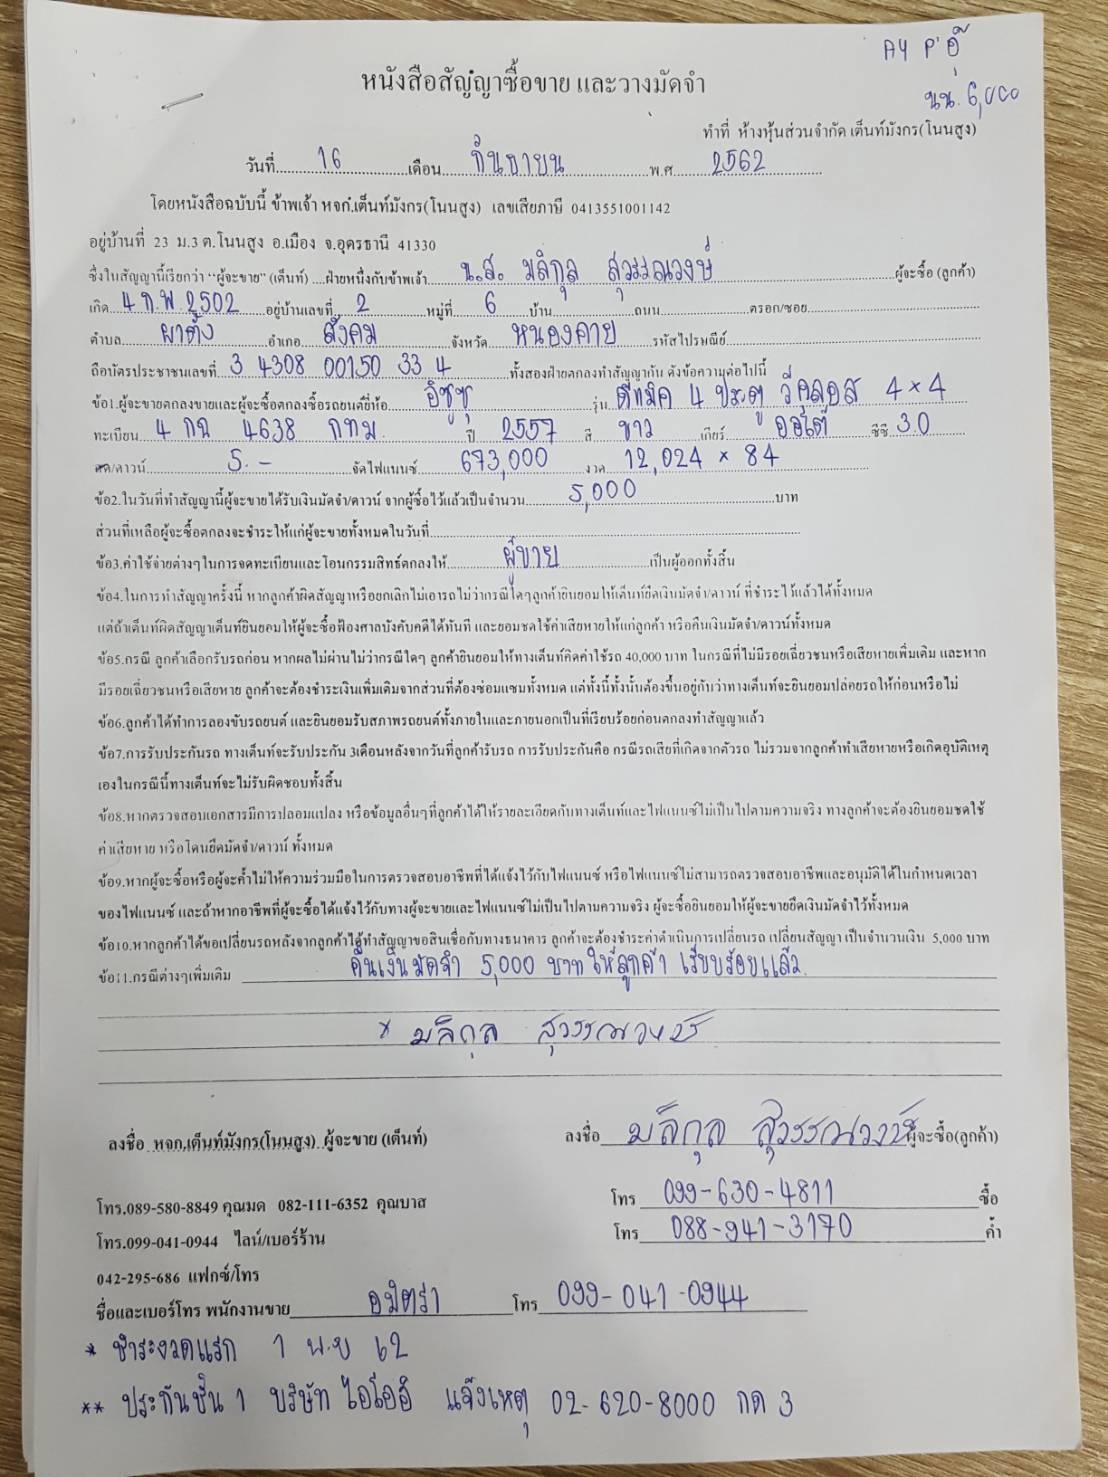 AY P' อุ๊
นน. 6,000
หนังสือสัญญาซื้อขาย และวางมัดจำ
ทำที่ ห้างหุ้นส่วนจำกัด เต็นท์มังกร(โนนสูง)
วันที่ 16 เดือน กันยายน พ.ศ. 2562
โดยหนังสือฉบับนี้ ข้าพเจ้า หจก.เต็นท์มังกร(โนนสูง) เลขเสียภาษี 0413551001142
อยู่บ้านที่ 23 ม.3 ต.โนนสูง อ.เมือง จ.อุดรธานี 41330
ซึ่งในสัญญานี้เรียกว่า "ผู้จะขาย" (เต็นท์) ....ฝ่ายหนึ่งกับข้าพเจ้า น.ส. มลิกุล สุวรรณวงษ์ ผู้จะซื้อ (ลูกค้า)
เกิด 4 ก.พ. 2502 อยู่บ้านเลขที่ 2 หมู่ที่ 6 บ้าน ถนน ตรอก/ซอย
ตำบล ผาตั้ง อำเภอ สังคม จังหวัด หนองคาย รหัสไปรษณีย์
ถือบัตรประชาชนเลขที่ 3 4308 00150 33 4 ทั้งสองฝ่ายตกลงทำสัญญากัน ดังข้อความต่อไปนี้
ข้อ1.ผู้จะขายตกลงขายและผู้จะซื้อตกลงซื้อรถยนต์ยี่ห้อ อีซูซุ รุ่น ดีแม็ค 4 ประตู วีครอส 4×4
ทะเบียน 4 กฉ 4638 กทม. ปี 2557 สี ขาว เกียร์ ออโต้ ซีซี 3.0
สด/ดาวน์ 5.- จัดไฟแนนซ์ 673,000 งวด 12,024 × 84
ข้อ2.ในวันที่ทำสัญญานี้ผู้จะขายได้รับเงินมัดจำ/ดาวน์ จากผู้ซื้อไว้แล้วเป็นจำนวน 5,000 บาท
ส่วนที่เหลือผู้จะซื้อตกลงจะชำระให้แก่ผู้จะขายทั้งหมดในวันที่
ข้อ3.ค่าใช้จ่ายต่างๆในการจดทะเบียนและโอนกรรมสิทธ์ตกลงให้ ผู้ขาย เป็นผู้ออกทั้งสิ้น
ข้อ4.ในการทำสัญญาครั้งนี้ หากลูกค้าผิดสัญญาหรือยกเลิกไม่เอารถไม่ว่ากรณีใดๆลูกค้ายินยอมให้เต็นท์ยึดเงินมัดจำ/ดาวน์ ที่ชำระไว้แล้วได้ทั้งหมด
แต่ถ้าเต็นท์ผิดสัญญาเต็นท์ยินยอมให้ผู้จะซื้อฟ้องศาลบังคับคดีได้ทันที และยอมชดใช้ค่าเสียหายให้แก่ลูกค้า หรือคืนเงินมัดจำ/ดาวน์ทั้งหมด
ข้อ5.กรณี ลูกค้าเลือกรับรถก่อน หากผลไม่ผ่านไม่ว่ากรณีใดๆ ลูกค้ายินยอมให้ทางเต็นท์คิดค่าใช้รถ 40,000 บาท ในกรณีที่ไม่มีรอยเฉี่ยวชนหรือเสียหายเพิ่มเติม และหาก
มีรอยเฉี่ยวชนหรือเสียหาย ลูกค้าจะต้องชำระเงินเพิ่มเติมจากส่วนที่ต้องซ่อมแซมทั้งหมด แต่ทั้งนี้ทั้งนั้นต้องขึ้นอยู่กับว่าทางเต็นท์จะยินยอมปล่อยรถให้ก่อนหรือไม่
ข้อ6.ลูกค้าได้ทำการลองขับรถยนต์ และยินยอมรับสภาพรถยนต์ทั้งภายในและภายนอกเป็นที่เรียบร้อยก่อนตกลงทำสัญญาแล้ว
ข้อ7.การรับประกันรถ ทางเต็นท์จะรับประกัน 3เดือนหลังจากวันที่ลูกค้ารับรถ การรับประกันคือ กรณีรถเสียที่เกิดจากตัวรถ ไม่รวมจากลูกค้าทำเสียหายหรือเกิดอุบัติเหตุ
เองในกรณีนี้ทางเต็นท์จะไม่รับผิดชอบทั้งสิ้น
ข้อ8.หากตรวจสอบเอกสารมีการปลอมแปลง หรือข้อมูลอื่นๆที่ลูกค้าได้ให้รายละเอียดกับทางเต็นท์และไฟแนนซ์ไม่เป็นไปตามความจริง ทางลูกค้าจะต้องยินยอมชดใช้
ค่าเสียหาย หรือโดนยึดมัดจำ/ดาวน์ ทั้งหมด
ข้อ9.หากผู้จะซื้อหรือผู้จะค้ำไม่ให้ความร่วมมือในการตรวจสอบอาชีพที่ได้แจ้งไว้กับไฟแนนซ์ หรือไฟแนนซ์ไม่สามารถตรวจสอบอาชีพและอนุมัติได้ในกำหนดเวลา
ของไฟแนนซ์ และถ้าหากอาชีพที่ผู้จะซื้อได้แจ้งไว้กับทางผู้จะขายและไฟแนนซ์ไม่เป็นไปตามความจริง ผู้จะซื้อยินยอมให้ผู้จะขายยึดเงินมัดจำไว้ทั้งหมด
ข้อ10.หากลูกค้าได้ขอเปลี่ยนรถหลังจากลูกค้าได้ทำสัญญาขอสินเชื่อกับทางธนาคาร ลูกค้าจะต้องชำระค่าดำเนินการเปลี่ยนรถ เปลี่ยนสัญญา เป็นจำนวนเงิน 5,000 บาท
ข้อ11.กรณีต่างๆเพิ่มเติม คืนเงินมัดจำ 5,000 บาท ให้ลูกค้า เรียบร้อยแล้ว
* มลิกุล สุวรรณวงษ์
ลงชื่อ หจก.เต็นท์มังกร(โนนสูง) ผู้จะขาย (เต็นท์) ลงชื่อ มลิกุล สุวรรณวงษ์ ผู้จะซื้อ(ลูกค้า)
โทร.089-580-8849 คุณมด 082-111-6352 คุณบาส โทร 099-630-4811 ซื้อ
โทร.099-041-0944 ไลน์/เบอร์ร้าน โทร 088-941-3170 ค้ำ
042-295-686 แฟกซ์/โทร
ชื่อและเบอร์โทร พนักงานขาย อมิตรา โทร 099-041-0944
* ชำระงวดแรก 1 พ.ย 62
** ประกันชั้น 1 บริษัท ไอโออิ แจ้งเหตุ 02-620-8000 กด 3